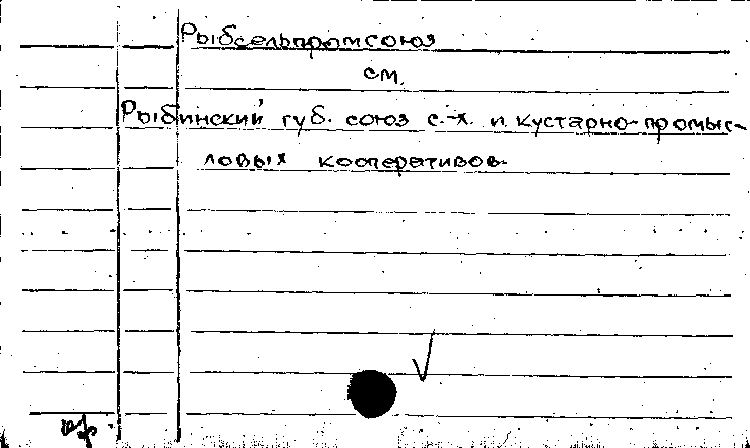 Рыбсельпромсоюз
см.
Рыбинский губ. союз с.-х. и кустарно-промыс-
ловых кооперативов.